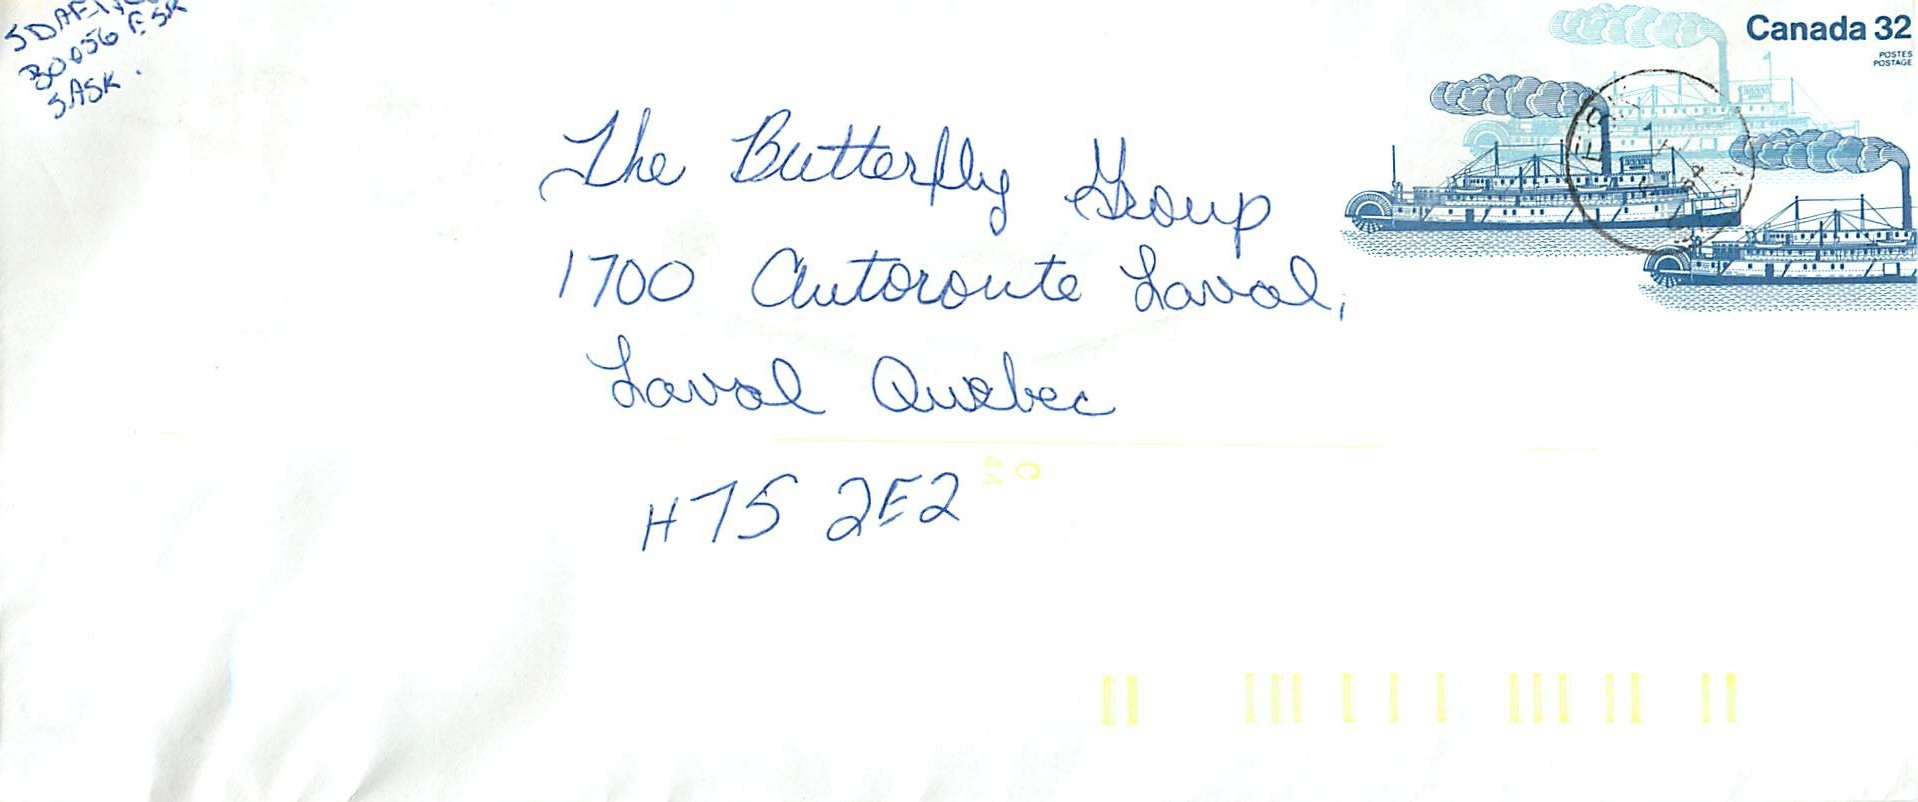 SASK.
Canada 32
POSTES
POSTAGE
The Butterfly Group
1700 Autoroute Laval,
Laval Quebec
H7S 2E2